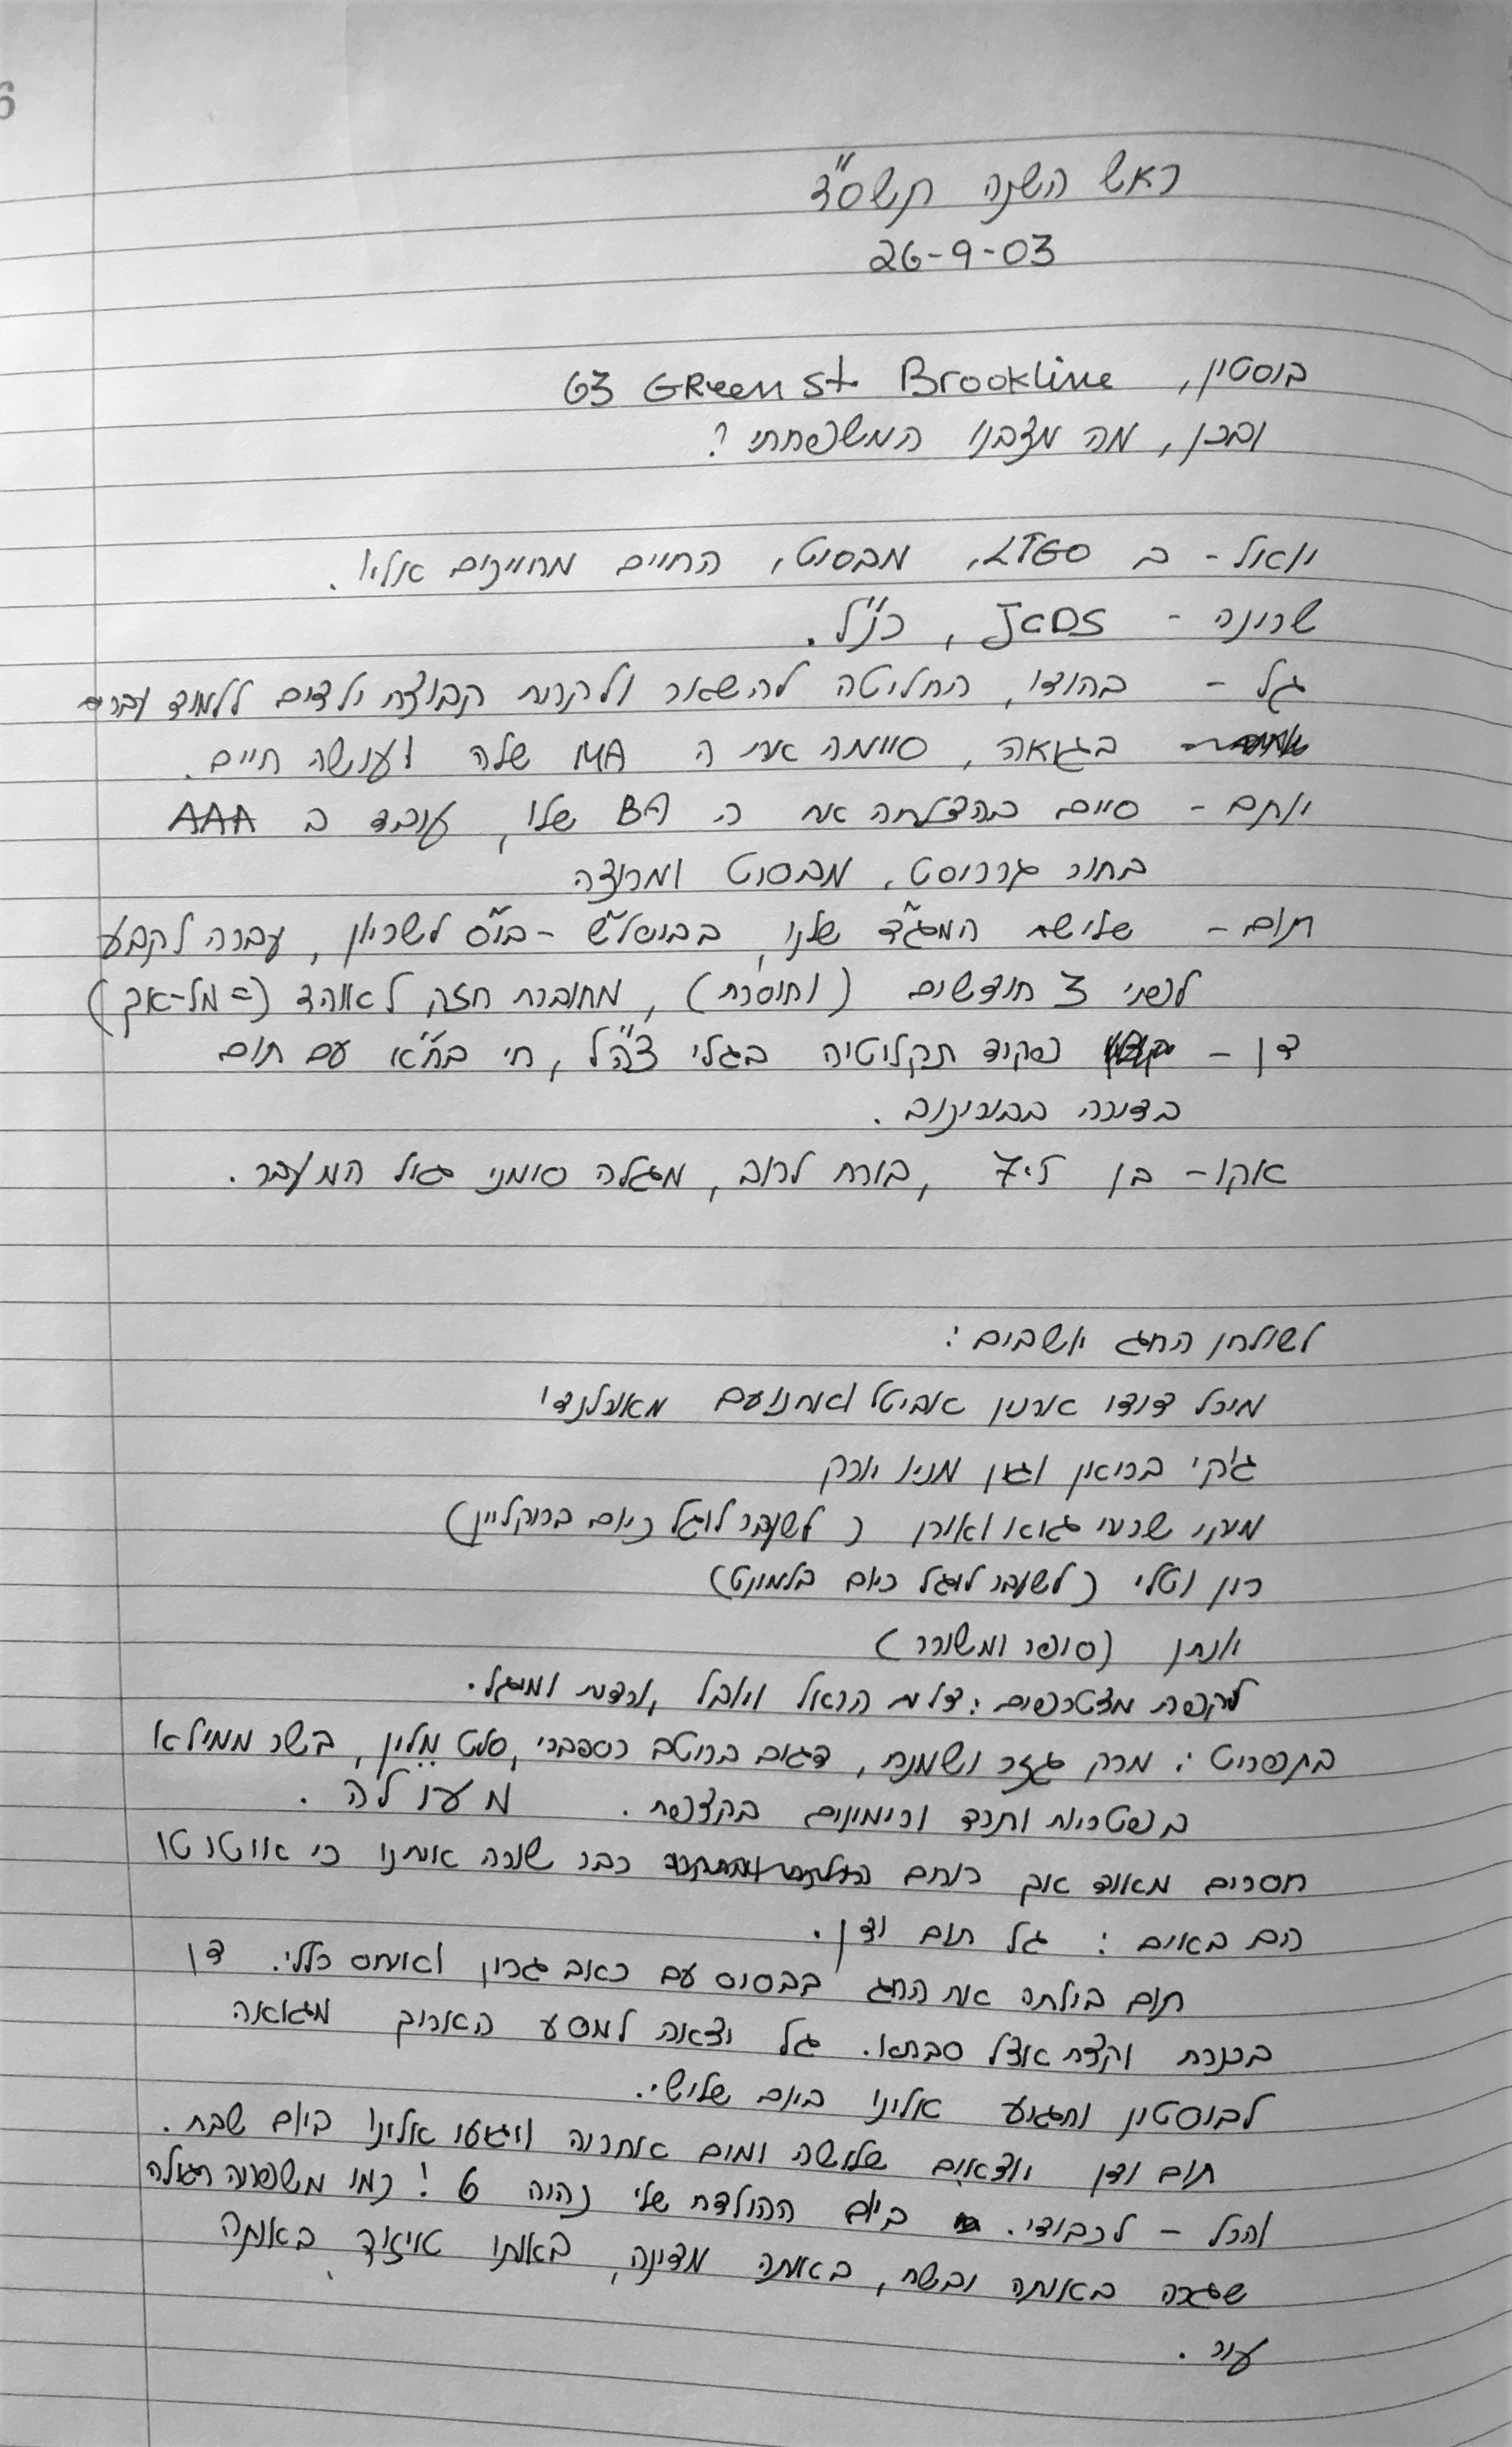 ראש השנה תשס"ד
26-9-03
בוסטון, 63 GReen St Brookline
ובכן, מה מצבנו המשפחתי?
יואל - ב LTGO, מבסוט, החיים מחוייכים אליו.
שרונה - JCDS, כנ"ל.
גל - בהודו, החליטה להשאר ולקחת קבוצת ילדים ללמוד עברית
בגואה, סיימה את ה MA שלה ועושה חיים.
יותם - סיים בהצלחה את ה BA שלו, עובד ב AAA
בתור מבסוט ומרוצה
תום - שלישת המג"ד שלנו, בביסל"ש - בי"ס לשריון, עברה לקבע
לפני 3 חודשים (וחוסכת), מחוברת חזק לאוהד (= מל-אך)
דן - פקיד תקליטיה בגלי צה"ל, חי בת"א עם תום
בדירה
אקו - בן 7.5, בורח לרוב, מגלה סומני גיל המעבר.
לשולחן החג יושבים:
מיכל דודו ארנון אביטל ואחנועם מאורלנדו
ג'קי בריאן וגון מניו יורק
מיקי שרעי גואו ואורן (לשעבר לוגל כיום ברוקליין)
רון וטלי (לשעבר לוגל כיום בלמונט)
יונתן (סופר ומשורר)
לקפה מצטרפים: צלית הראל ויובל, ורדית ומיגל.
בתפריט: מרק גזר ושמנת, דגים ברוטב רספברי, סלט מלון, בשר ממולא
בפטריות ותרד ורימונים בקצפת. מעולה.
חסרים מאוד אך רוחם כבר שורה איתנו כי אוטוטו
הם באים: גל תום ודן.
תום בילתה את החג בבסיס עם כאב גרון ואיחס כללי. דן
בכנרת וקצת אצל סבתא. גל יצאה למסע הארוך מגואה
לבוסטון ותגיע אלינו ביום שלישי.
תום ודן יוצאים שלושה ימים אחריה ויגיעו אלינו ביום שבת.
והכל - לכבודי. ביום ההולדת שלי נהיה 6! כמו משפחה רגילה
שגרה באותה יבשת, באותה מדינה, באותו איזור באותה
עיר.